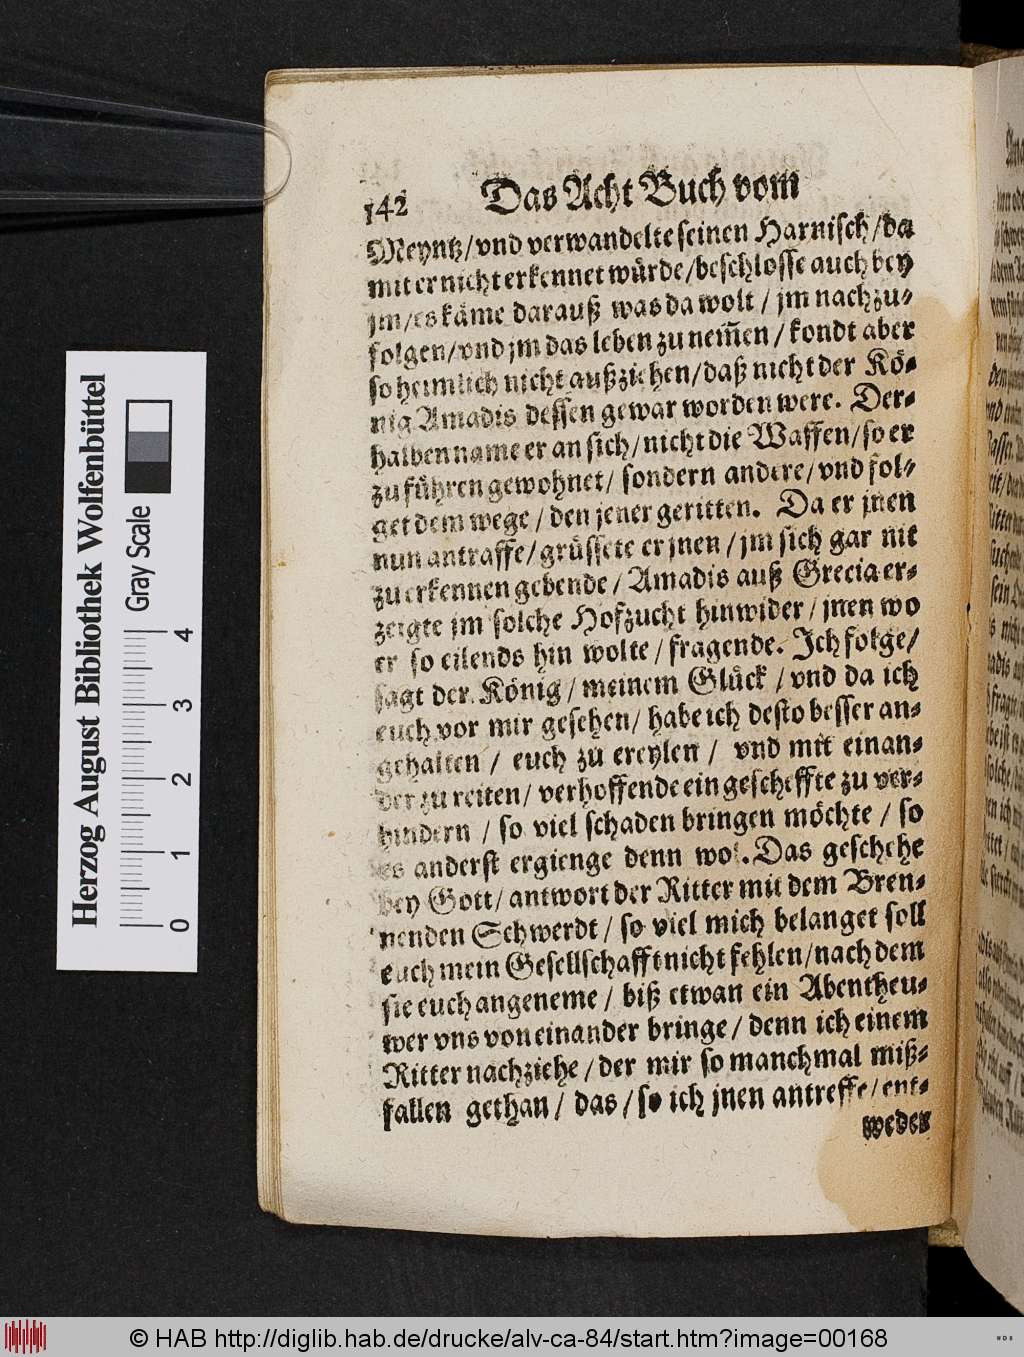 142 Das Acht Buch vom
Meyntz/vnd verwandelte seinen Harnisch/da
mit er nicht erkennet würde/beschlosse auch bey
jm/es käme darauß was da wolt/jm nachzu-
folgen/vnd jm das leben zu nem̃en/kondt aber
so heimlich nicht außziehen/daß nicht der Kö-
nig Amadis dessen gewar worden were. Der-
halben name er an sich/nicht die Waffen/so er
zu führen gewohnet/sondern andere/vnd fol-
get dem wege/den jener geritten. Da er jnen
nun antraffe/grüssete er jnen/jm sich gar nit
zu erkennen gebende/Amadis auß Grecia er-
zeigte jm solche Hofzucht hinwider/jnen wo
er so eilends hin wolte/fragende. Ich folge/
sagt der König/meinem Glück/vnd da ich
euch vor mir gesehen/habe ich desto besser an-
gehalten/euch zu ereylen/vnd mit einan-
der zu reiten/verhoffende ein gescheffte zu ver-
hindern/so viel schaden bringen möchte/so
es anderst ergienge denn wol. Das geschehe
bey Gott/antwort der Ritter mit dem Bren-
nenden Schwerdt/so viel mich belanget soll
euch mein Gesellschafft nicht fehlen/nach dem
sie euch angeneme/biß etwan ein Abentheu-
wer vns von einander bringe/denn ich einem
Ritter nachziehe/der mir so manchmal miß-
fallen gethan/das/so ich jnen antreffe/ent-
weder
Herzog August Bibliothek Wolfenbüttel
Gray Scale
0 1 2 3 4
© HAB http://diglib.hab.de/drucke/alv-ca-84/start.htm?image=00168